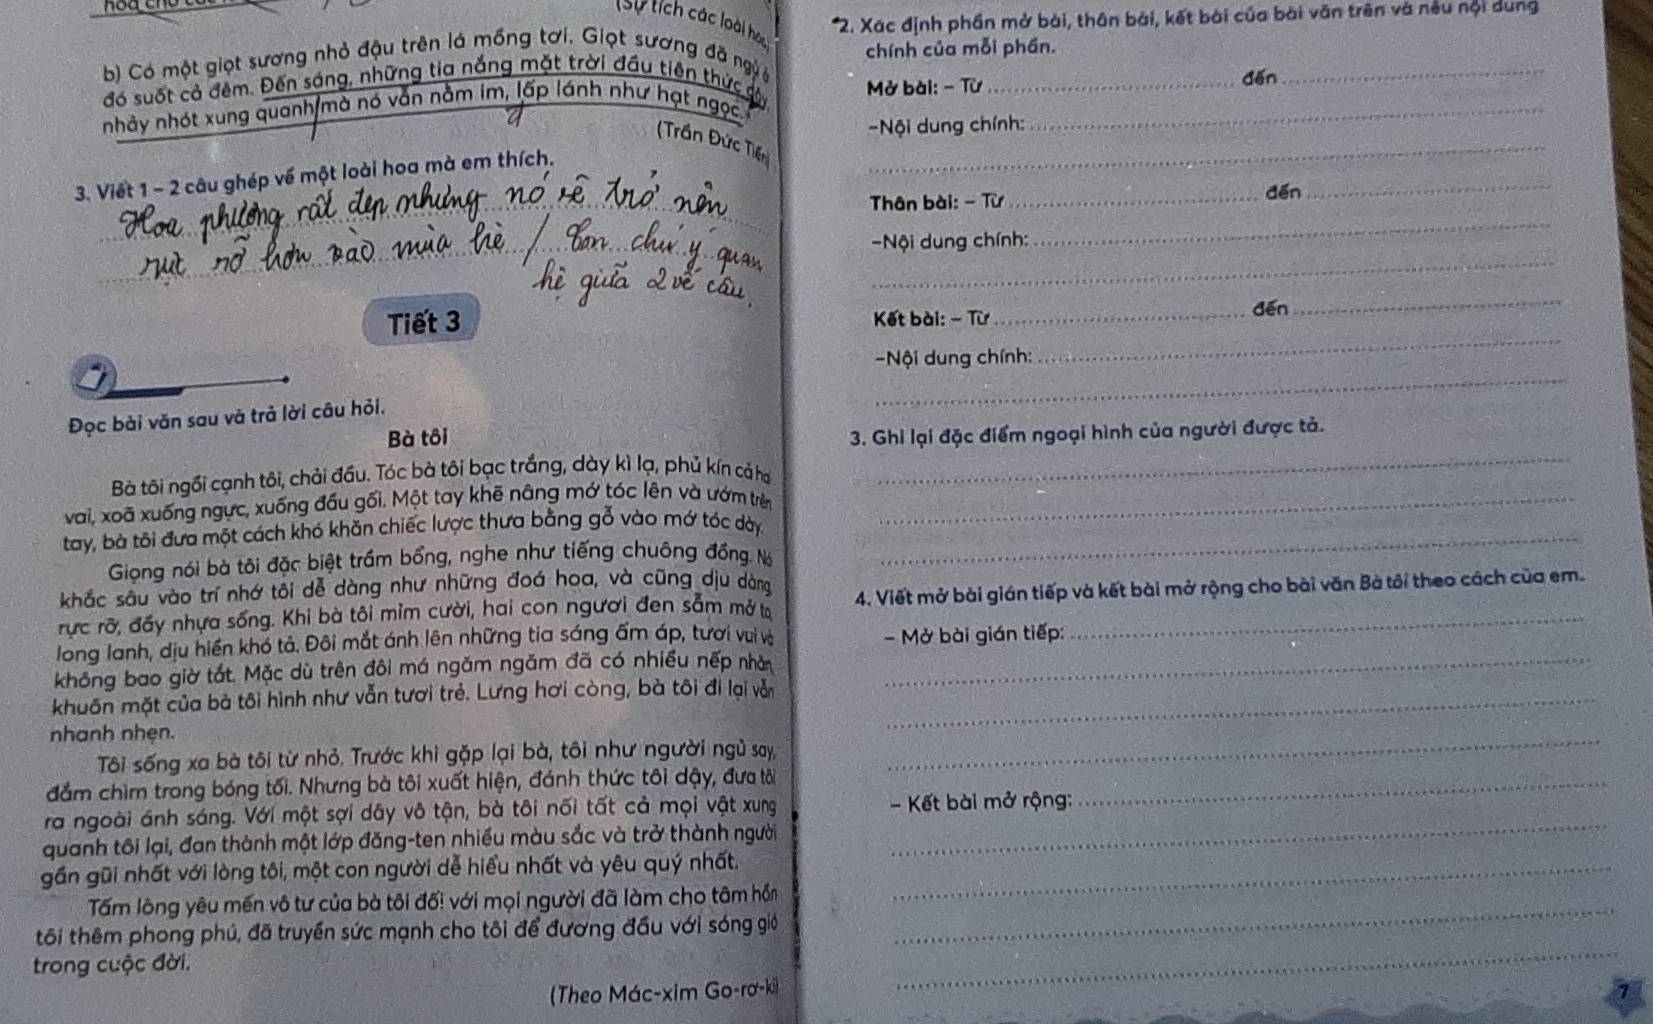 (Sự tích các loài hoa)
b) Có một giọt sương nhỏ đậu trên lá mồng tơi. Giọt sương đã ngủ ở
đó suốt cả đêm. Đến sáng, những tia nắng mặt trời đầu tiên thức dậy,
nhảy nhót xung quanh mà nó vẫn nằm im, lấp lánh như hạt ngọc.
(Trần Đức Tiến)
3. Viết 1 - 2 câu ghép về một loài hoa mà em thích.
Hoa phượng rất đẹp nhưng nó sẽ trở nên
rực rỡ hơn vào mùa hè / Con chú ý quan
hệ giữa 2 vế câu.
Tiết 3
Đọc bài văn sau và trả lời câu hỏi.
Bà tôi
Bà tôi ngồi cạnh tôi, chải đầu. Tóc bà tôi bạc trắng, dày kì lạ, phủ kín cả hai
vai, xoã xuống ngực, xuống đầu gối. Một tay khẽ nâng mớ tóc lên và ướm trên
tay, bà tôi đưa một cách khó khăn chiếc lược thưa bằng gỗ vào mớ tóc dày.
Giọng nói bà tôi đặc biệt trầm bổng, nghe như tiếng chuông đồng. Nó
khắc sâu vào trí nhớ tôi dễ dàng như những đoá hoa, và cũng dịu dàng,
rực rỡ, đầy nhựa sống. Khi bà tôi mỉm cười, hai con ngươi đen sẫm mở to,
long lanh, dịu hiền khó tả. Đôi mắt ánh lên những tia sáng ấm áp, tươi vui và
không bao giờ tắt. Mặc dù trên đôi má ngăm ngăm đã có nhiều nếp nhăn,
khuôn mặt của bà tôi hình như vẫn tươi trẻ. Lưng hơi còng, bà tôi đi lại vẫn
nhanh nhẹn.
Tôi sống xa bà tôi từ nhỏ. Trước khi gặp lại bà, tôi như người ngủ say,
đắm chìm trong bóng tối. Nhưng bà tôi xuất hiện, đánh thức tôi dậy, đưa tôi
ra ngoài ánh sáng. Với một sợi dây vô tận, bà tôi nối tất cả mọi vật xung
quanh tôi lại, đan thành một lớp đăng-ten nhiều màu sắc và trở thành người
gần gũi nhất với lòng tôi, một con người dễ hiểu nhất và yêu quý nhất.
Tấm lòng yêu mến vô tư của bà tôi đối với mọi người đã làm cho tâm hồn
tôi thêm phong phú, đã truyền sức mạnh cho tôi để đương đầu với sóng gió
trong cuộc đời.
(Theo Mác-xim Go-rơ-ki)
2. Xác định phần mở bài, thân bài, kết bài của bài văn trên và nêu nội dung
chính của mỗi phần.
Mở bài: - Từ đến
-Nội dung chính:
Thân bài: - Từ đến
-Nội dung chính:
Kết bài: - Từ đến
-Nội dung chính:
3. Ghi lại đặc điểm ngoại hình của người được tả.
4. Viết mở bài gián tiếp và kết bài mở rộng cho bài văn Bà tôi theo cách của em.
- Mở bài gián tiếp:
- Kết bài mở rộng:
7